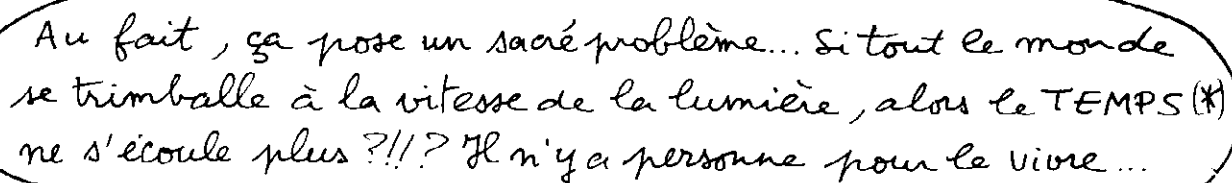 Au fait, ça pose un sacré problème... Si tout le monde
se trimballe à la vitesse de la lumière, alors le TEMPS (*)
ne s'écoule plus ?!!? Il n'y a personne pour le vivre...